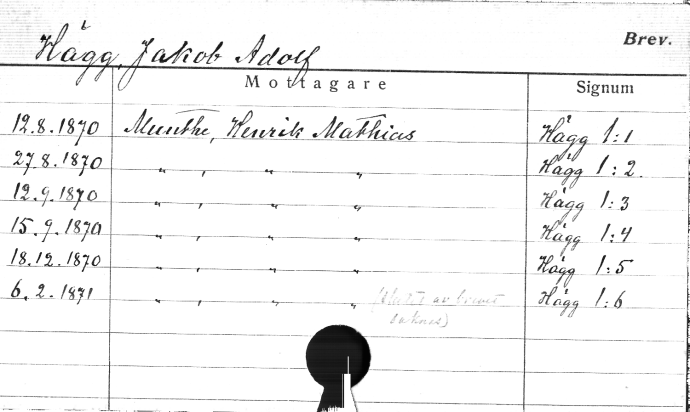 Brev.
Hägg, Jakob Adolf
Mottagare Signum
12.8.1870 Munthe, Henrik Mathias Hägg 1:1
27.8.1870 " , " " Hägg 1:2.
12.9.1870 " , " " Hägg 1:3
15.9.1870 " , " " Hägg 1:4
18.12.1870 " , " " Hägg 1:5
6.2.1871 " , " " (slutet av brevet Hägg 1:6
saknas)